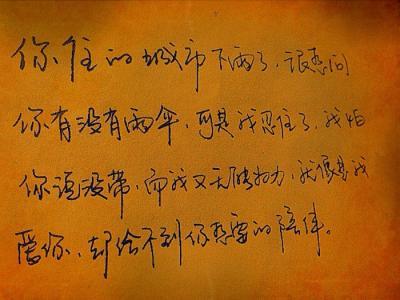 你住的城市下雨了，很想问
你有没有雨伞，可是我忍住了，我怕
你说没带，而我又无能为力，就像是我
爱你，却给不到你想要的陪伴。